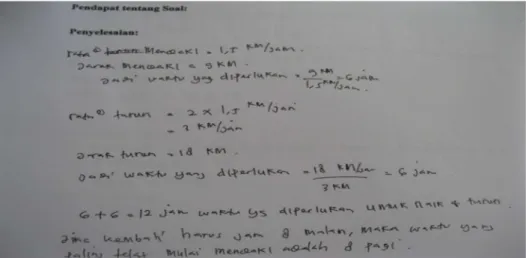 Pendapat tentang Soal:
Penyelesaian:
rata² mendaki = 1,5 KM/jam.
Jarak mendaki = 9 KM.
Jadi waktu yag diperlukan = 9 KM / 1,5 KM/jam = 6 jam
rata² turun = 2 x 1,5 KM/jam
= 3 KM/jam
Jarak turun = 18 KM.
Jadi waktu yang diperlukan = 18 KM/jam / 3 KM = 6 jam
6 + 6 = 12 jam waktu yg diperlukan untuk naik & turun.
Jika kembali harus jam 8 malam, maka waktu yang
paling telat mulai mendaki adalah 8 pagi.